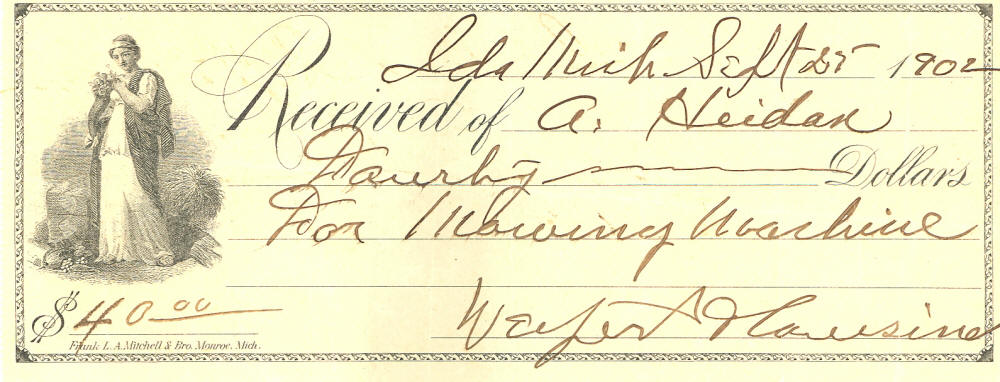 Ida Mich Sept 25 1902
Received of A. Heidan
Fourty Dollars
For Mowing Machine
$ 40.00
Frank L. A. Mitchell & Bro. Monroe, Mich.